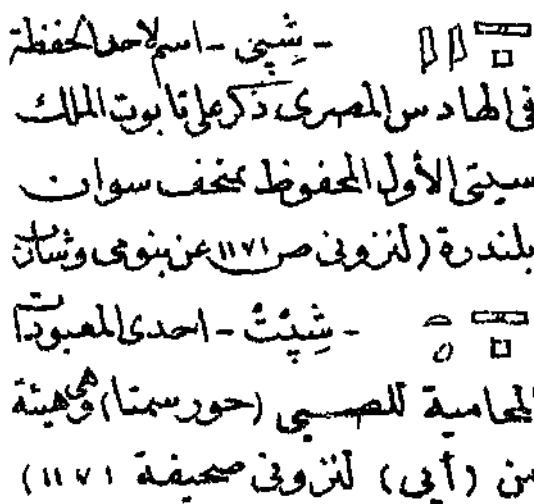 - شِپِى - اسم لاحد الحفظة
فى الهادس المصرى ذكر على تابوت الملك
سيتى الأول المحفوظ بمتحف سوان
بلندرة (لنزونى ص ١١٧١ عن بنومى وشارب
- شِپِتْ - احدى المعبودات
المحامية للصبى (حور سمتا) وهى هيئة
من (أپى) لنزونى صحيفة ١١٧١)